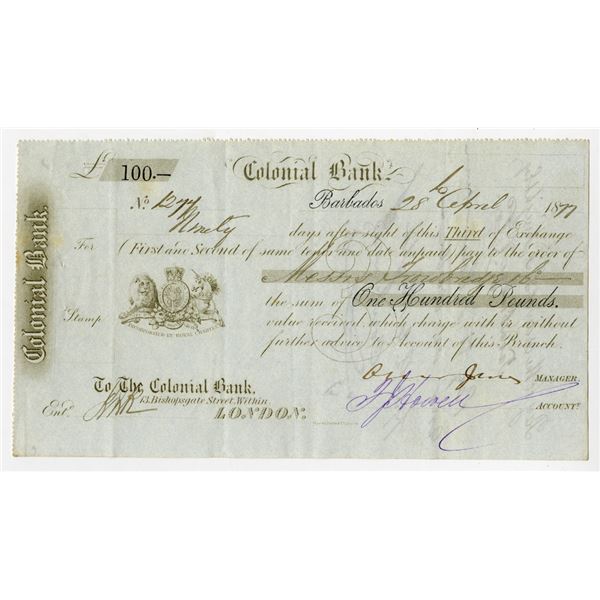 £ 100.—
Colonial Bank.
Nº 1277
Barbados 28 April 1877
Ninety days after sight of this Third of Exchange
For (First and Second of same tenor and date unpaid) pay to the order of
Messrs
the sum of One Hundred Pounds.
Stamp
value received, which charge with or without
INCORPORATED BY ROYAL CHARTER
further advice to Account of this Branch.
MANAGER
To The Colonial Bank,
13, Bishopsgate Street, Within,
ACCOUNT.
Entd.
LONDON.
Colonial Bank.